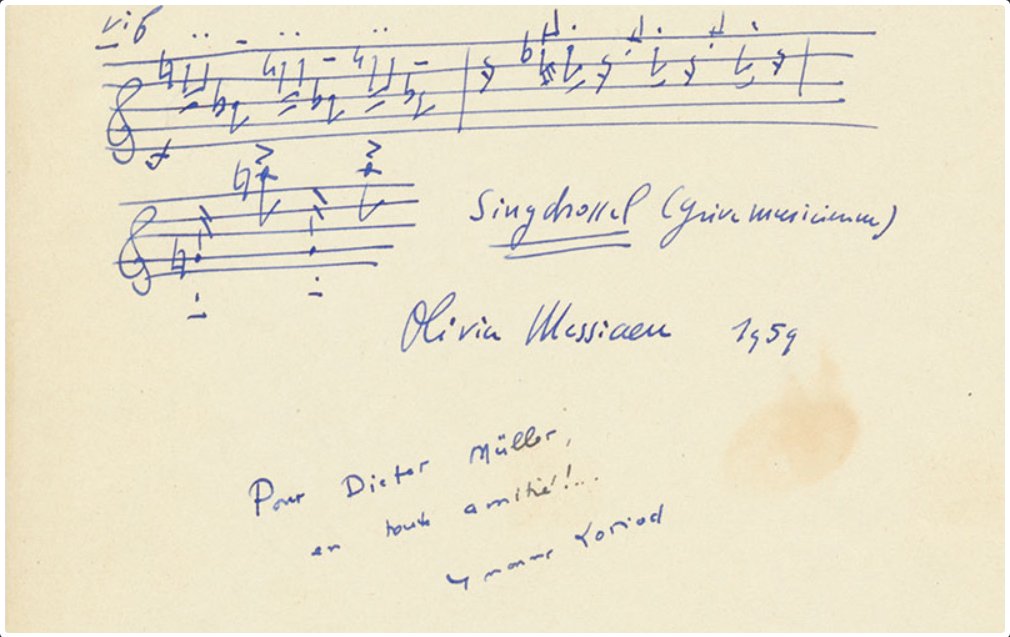 vif
f
Singdrossel (grive musicienne)
Olivier Messiaen 1959
Pour Dieter Müller,
en toute amitié!...
Yvonne Loriod